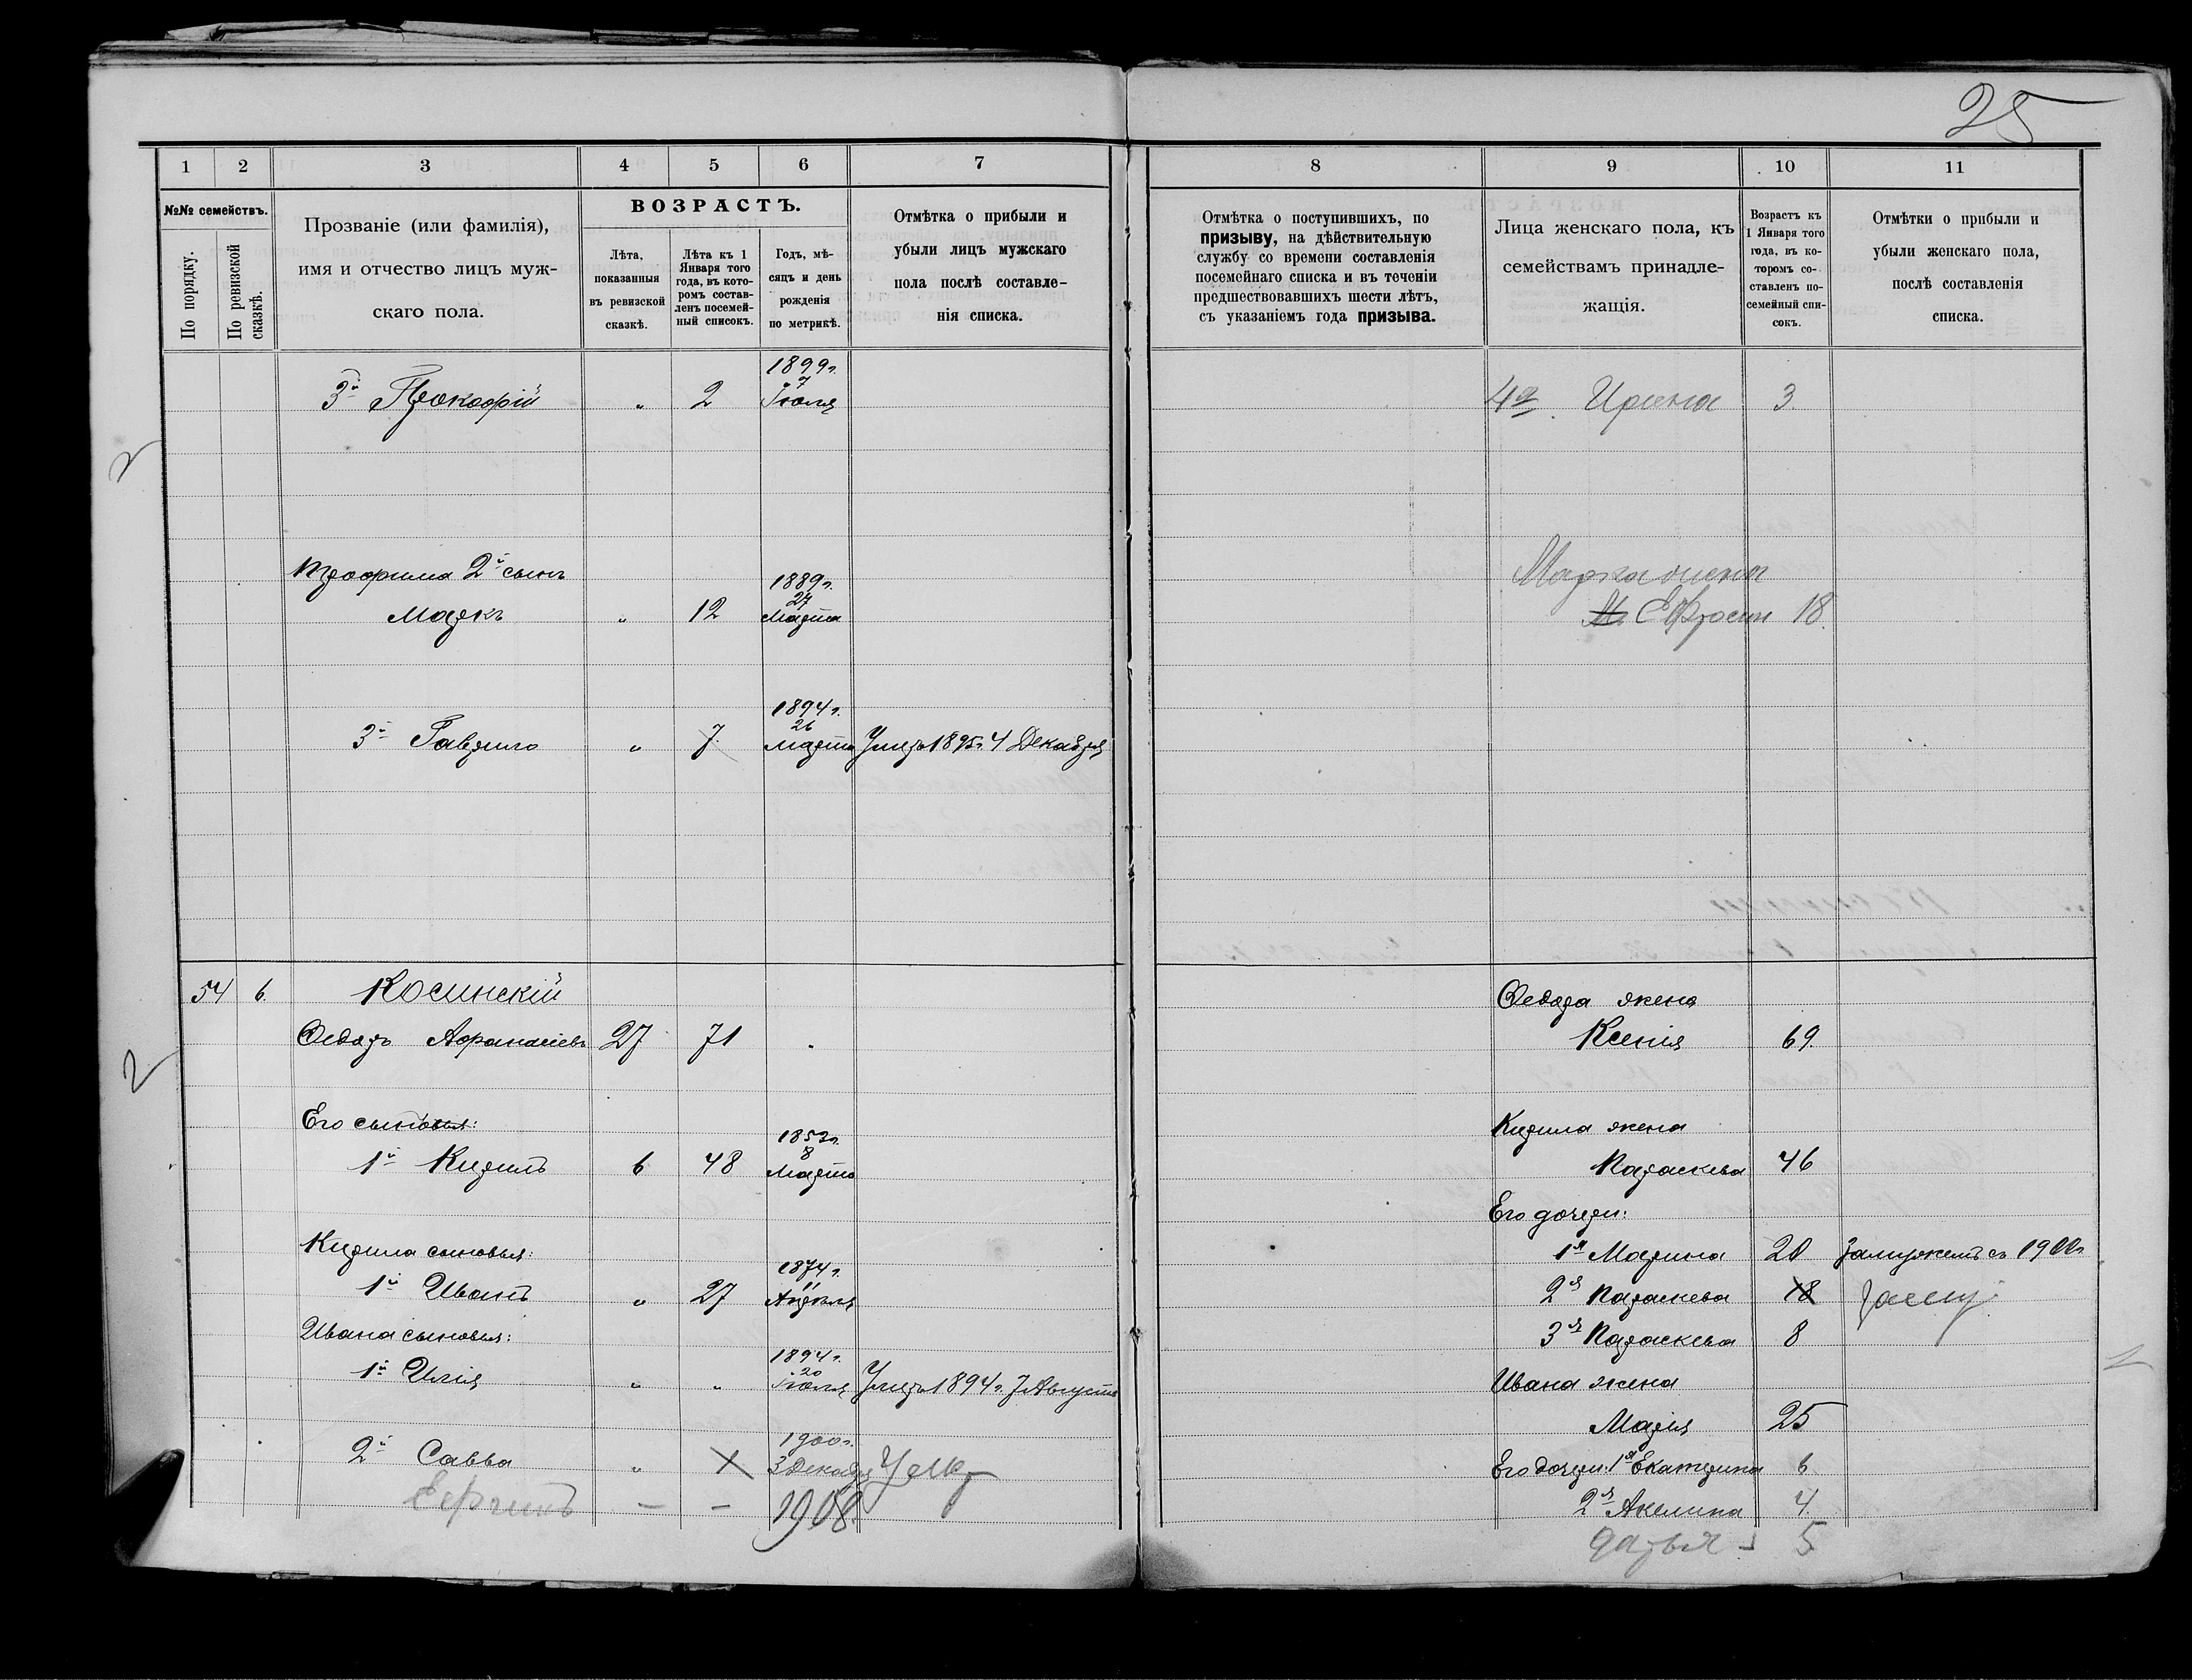 25
1 2 3 4 5 6 7
№№ семействъ.
По порядку.
По ревизской сказкѣ.
Прозваніе (или фамилія),
имя и отчество лицъ муж-
скаго пола.
ВОЗРАСТЪ.
Лѣта,
показанныя
въ ревизской
сказкѣ.
Лѣта къ 1
Января того
года, въ кото-
ромъ состав-
ленъ посемей-
ный списокъ.
Годъ, мѣ-
сяцъ и день
рожденія
по метрикѣ.
Отмѣтка о прибыли и
убыли лицъ мужскаго
пола послѣ составле-
нія списка.
1899г.
7
3й Прокофій " 2 Іюля
Трофима 2й сынъ
1889г.
27
Маркъ " 12 Марта
1894г.
26
3й Гаврило " 7 Марта Умеръ 1895г. 4 Декабря
54 6. Косинскій
Ѳедоръ Афанасіевъ 27 71
Его сыновья:
1852г.
8
1й Кирилъ 6 48 Марта
Кирила сыновья:
1874г.
11
1й Иванъ " 27 Апрѣля
Ивана сыновья:
1894г.
20
1й Илія " " Іюля Умеръ 1894г. 7 Августа
1900г.
2й Савва " 3 Декабря Умер
— — 1908.
2
8 9 10 11
Отмѣтка о поступившихъ, по
призыву, на дѣйствительную
службу со времени составленія
посемейнаго списка и въ теченіи
предшествовавшихъ шести лѣтъ,
съ указаніемъ года призыва.
Лица женскаго пола, къ
семействамъ принадле-
жащія.
Возрастъ къ
1 Января того
года, въ ко-
торомъ со-
ставленъ по-
семейный спи-
сокъ.
Отмѣтки о прибыли и
убыли женскаго пола,
послѣ составленія
списка.
4я Ирина 3.
Марка жена
Ефросин 18.
Ѳедора жена
Ксенія 69.
Кирила жена
Параскева 46
Его дочери:
1я Марина 20 Замужемъ съ 1900г
2я Параскева 18 Замуж
3я Параскева 8
Ивана жена
Марія 25
Его дочери: 1я Екатерина 6
2я Акелина 4.
Дарья - 5